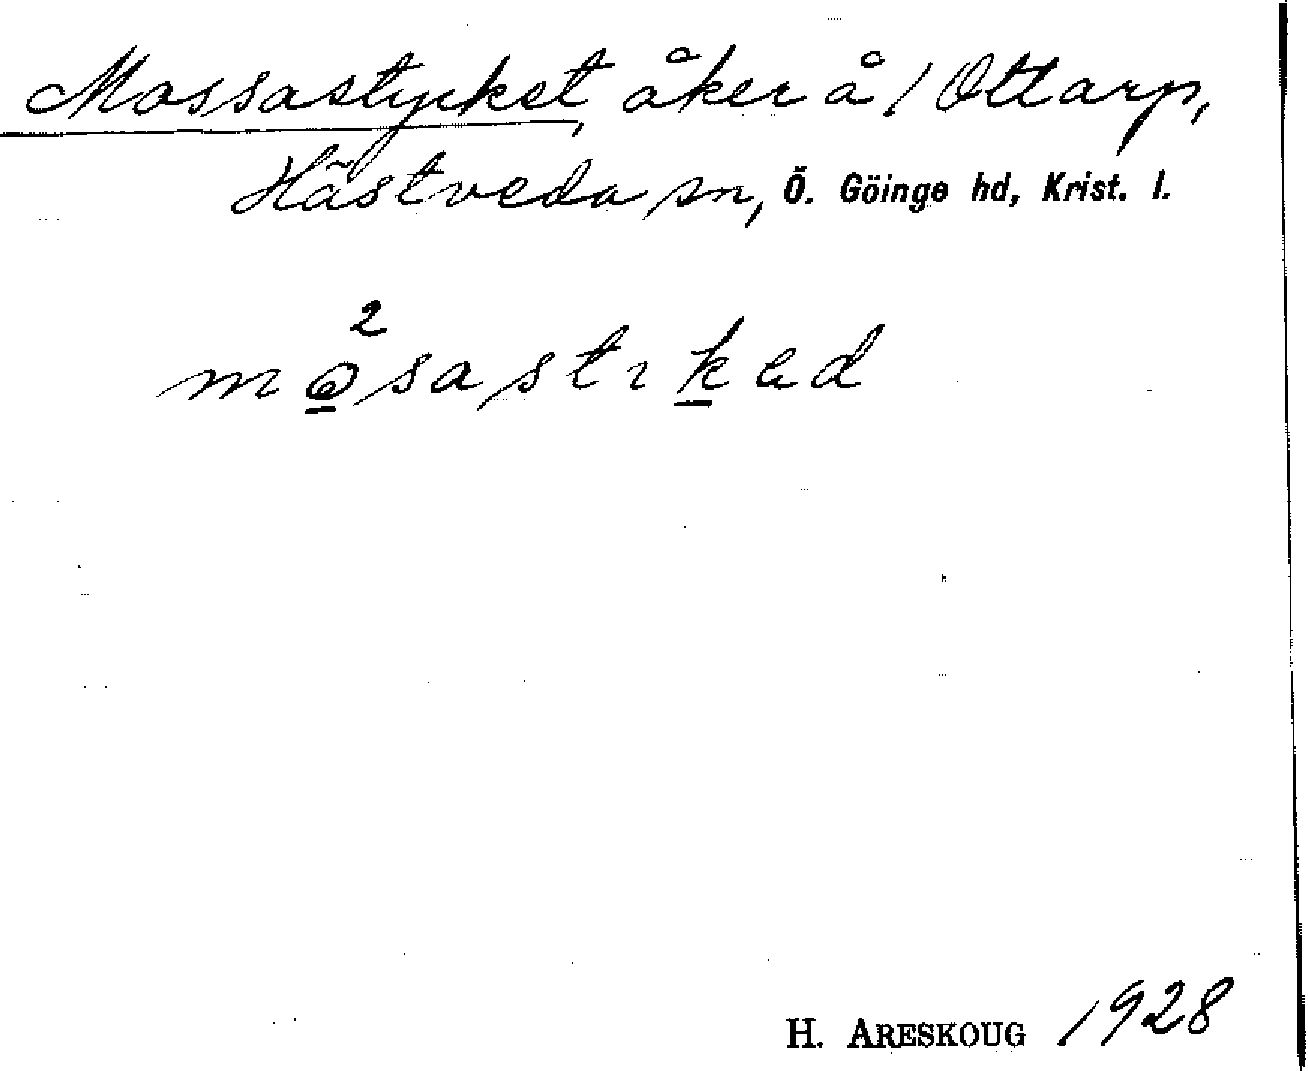 Mossastycket, åker å / Ottarp,
Hästveda sn, Ö. Göinge hd, Krist. l.
2
mo̲sastık̲ad
H. ARESKOUG 1928